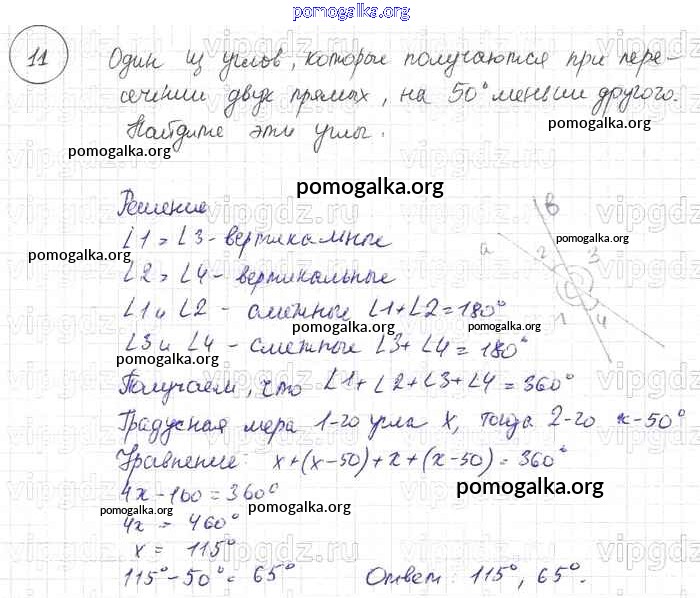 pomogalka.org
11 Один из углов, которые получаются при пере-
сечении двух прямых, на 50° меньше другого.
pomogalka.org
Найдите эти углы.
pomogalka.org
vipgdz.ru
pomogalka.org
Решение
∠1 = ∠3 - вертикальные
pomogalka.org
∠2 = ∠4 - вертикальные
∠1 и ∠2 - смежные ∠1+∠2=180°
pomogalka.org pomogalka.org
∠3 и ∠4 - смежные ∠3+∠4=180°
pomogalka.org
Получаем, что ∠1+∠2+∠3+∠4=360°
Градусная мера 1-го угла x, тогда 2-го x-50°
Уравнение: x+(x-50)+x+(x-50)=360°
pomogalka.org
4x-100=360°
pomogalka.org pomogalka.org
4x = 460°
x = 115°
115°-50°=65° Ответ: 115°, 65°.
a
в
pomogalka.org
2 3
1 4